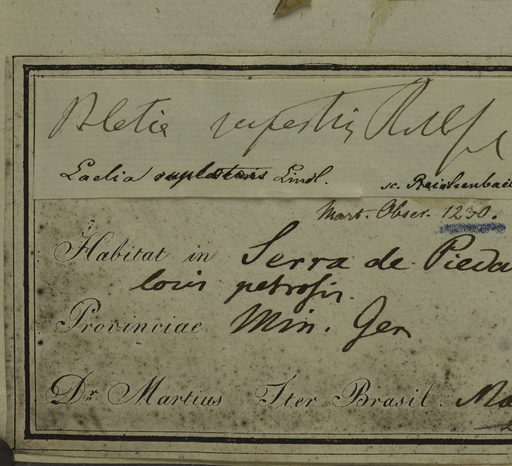 Bletia rupestris Rchb f
Laelia rupestris Lindl.
sc. Reichenbach
Mart. Obser. 1230.
Habitat in Serra de Pieda
locis petrosis.
Provinciae Min. Ger
Dr. Martius Iter Brasil. Ma